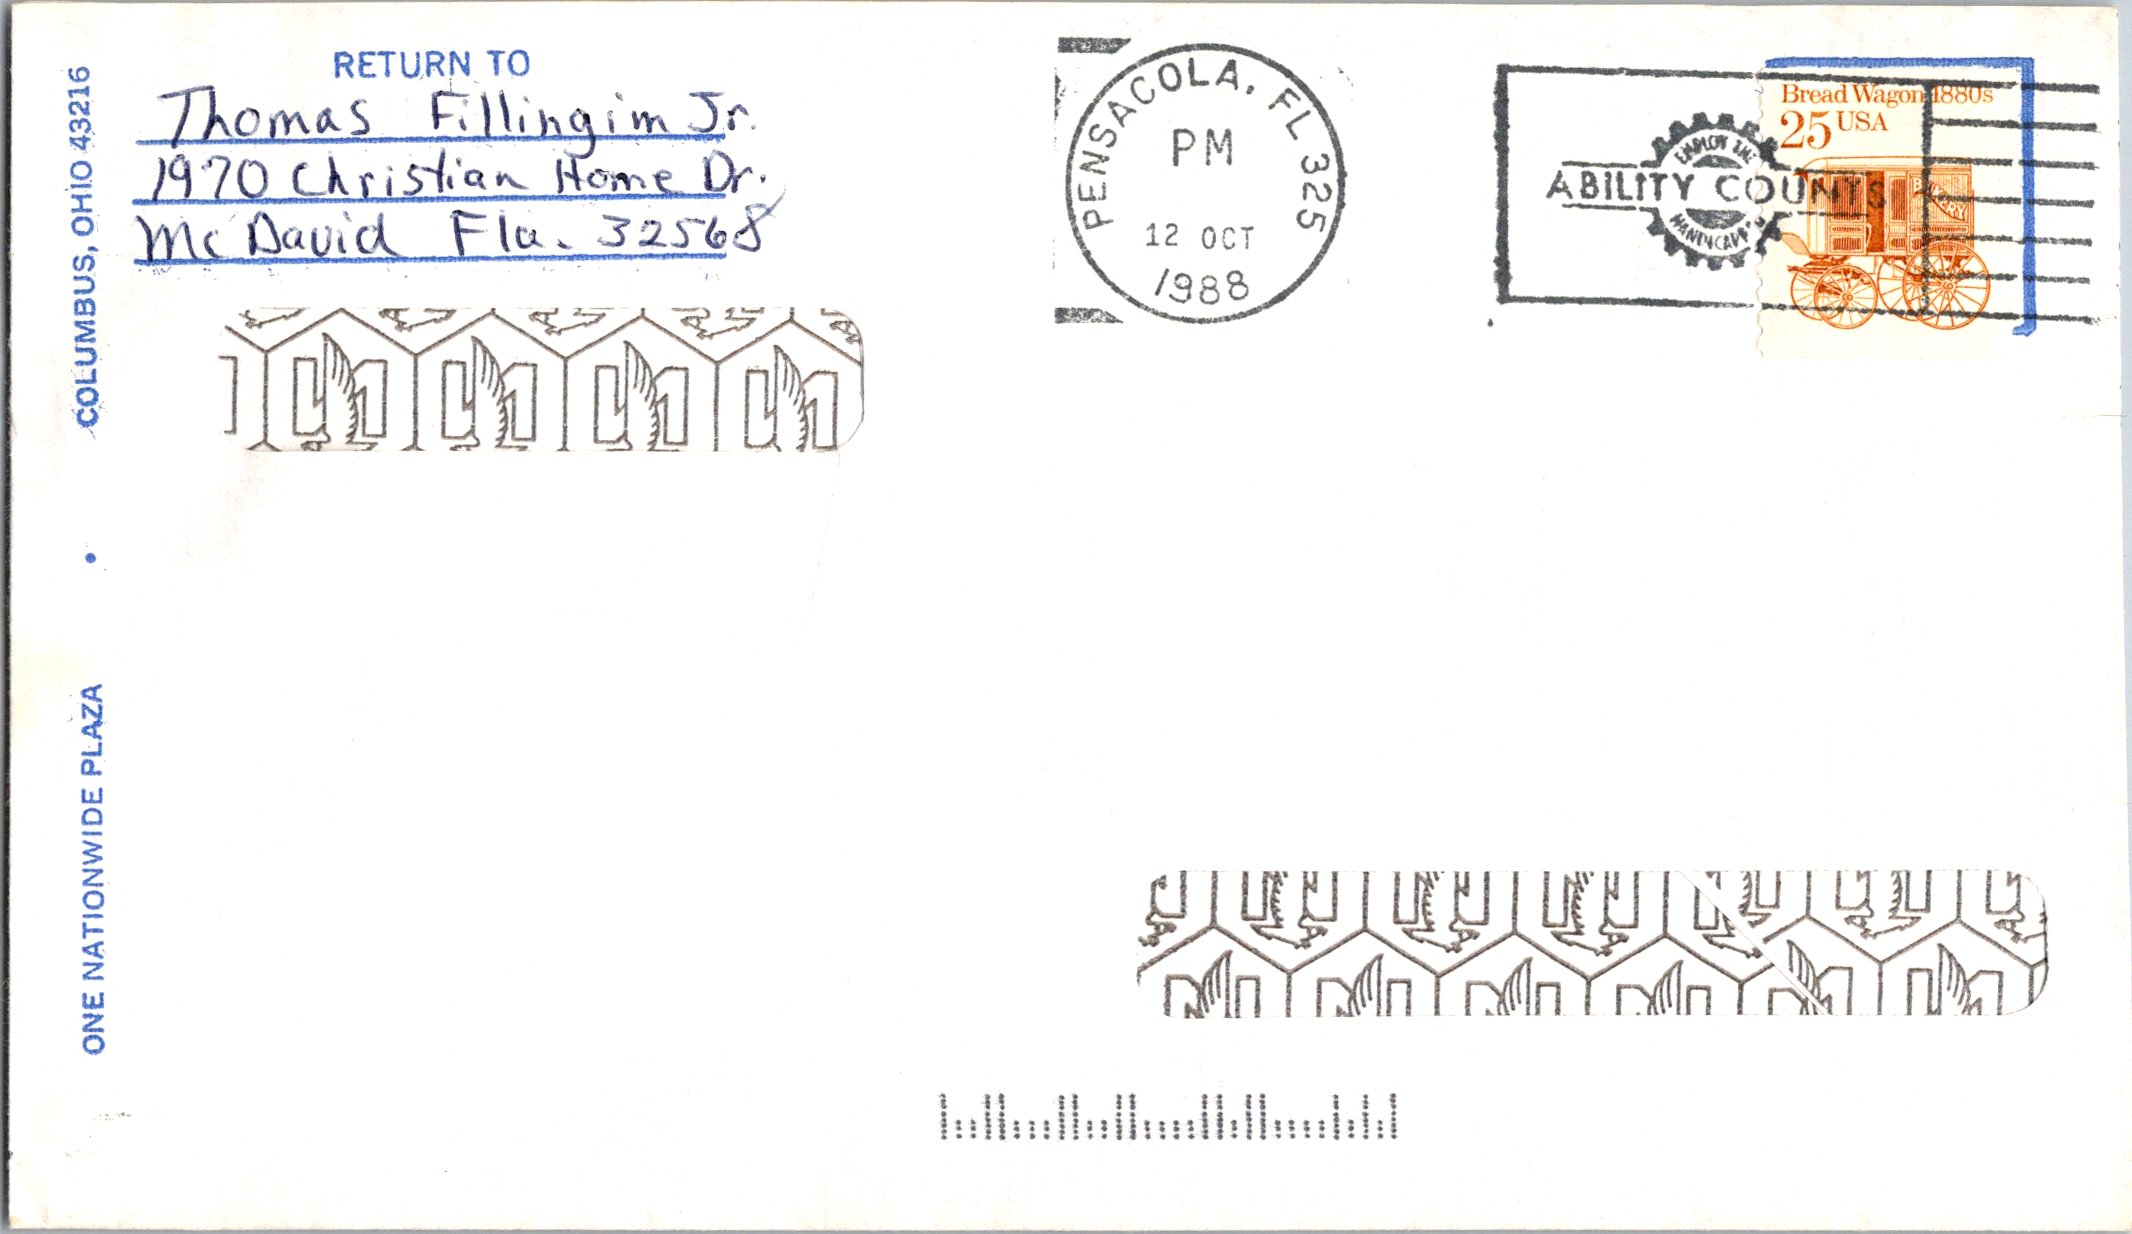 RETURN TO
Thomas Fillingim Jr.
1970 Christian Home Dr.
McDavid Fla. 32568
COLUMBUS, OHIO 43216
•
ONE NATIONWIDE PLAZA
PENSACOLA, FL 325
PM
12 OCT
1988
EMPLOY THE
ABILITY COUNTS
HANDICAPPED
Bread Wagon 1880s
25 USA
BAKERY